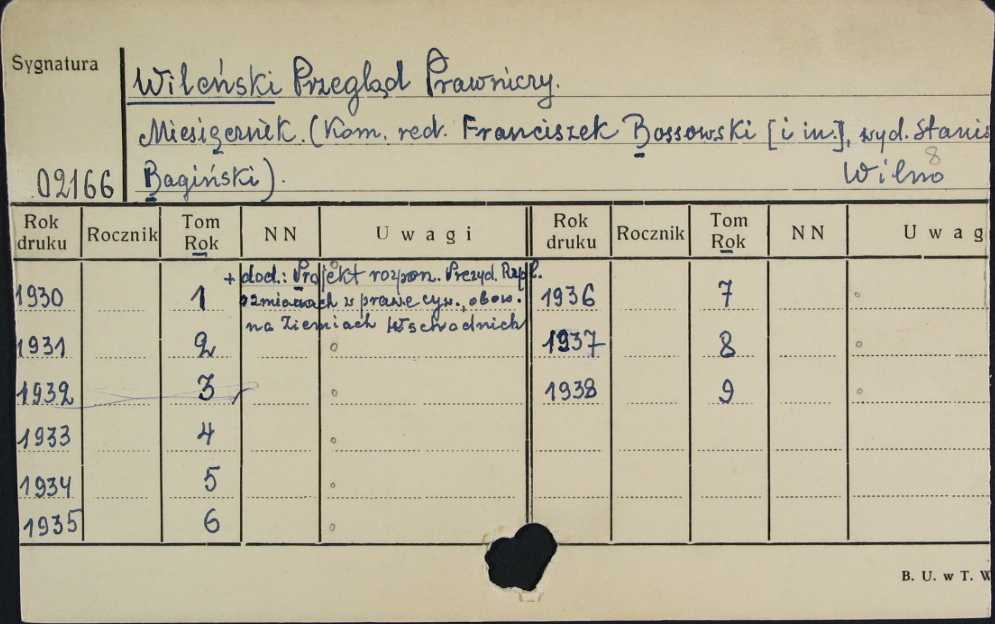 Sygnatura
Wileński Przegląd Prawniczy.
Miesięcznik. (Kom. red. Franciszek Bossowski [i in.], wyd. Stanis
02166 Bagiński). Wilno 8
Rok druku Rocznik Tom Rok NN Uwagi Rok druku Rocznik Tom Rok NN Uwag
+ dod.: Projekt rozpon. Prezyd. Rzpl.
1930 1 o zmianach w prawie cyw., obow. 1936 7
na Ziemiach Wschodnich
1931 2 1937 8
1932 3 1938 9
1933 4
1934 5
1935 6
B. U. w T. W